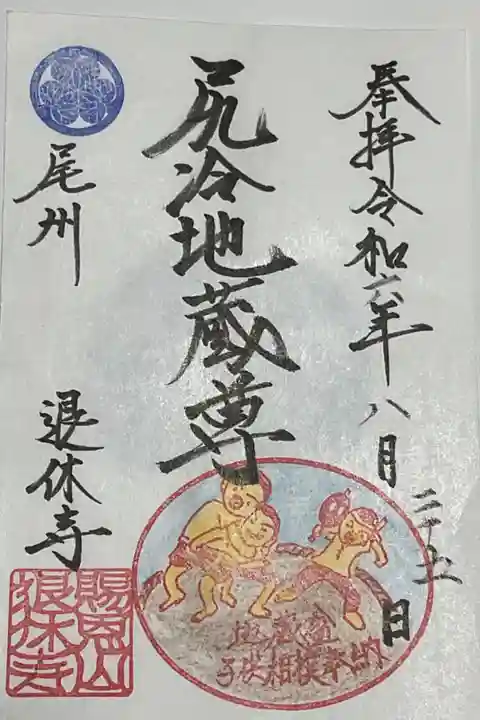 奉拝令和六年八月二十五日
尻冷地蔵尊
尾州
退休寺
地蔵盆
子供相撲奉納
賜恩山
退休寺